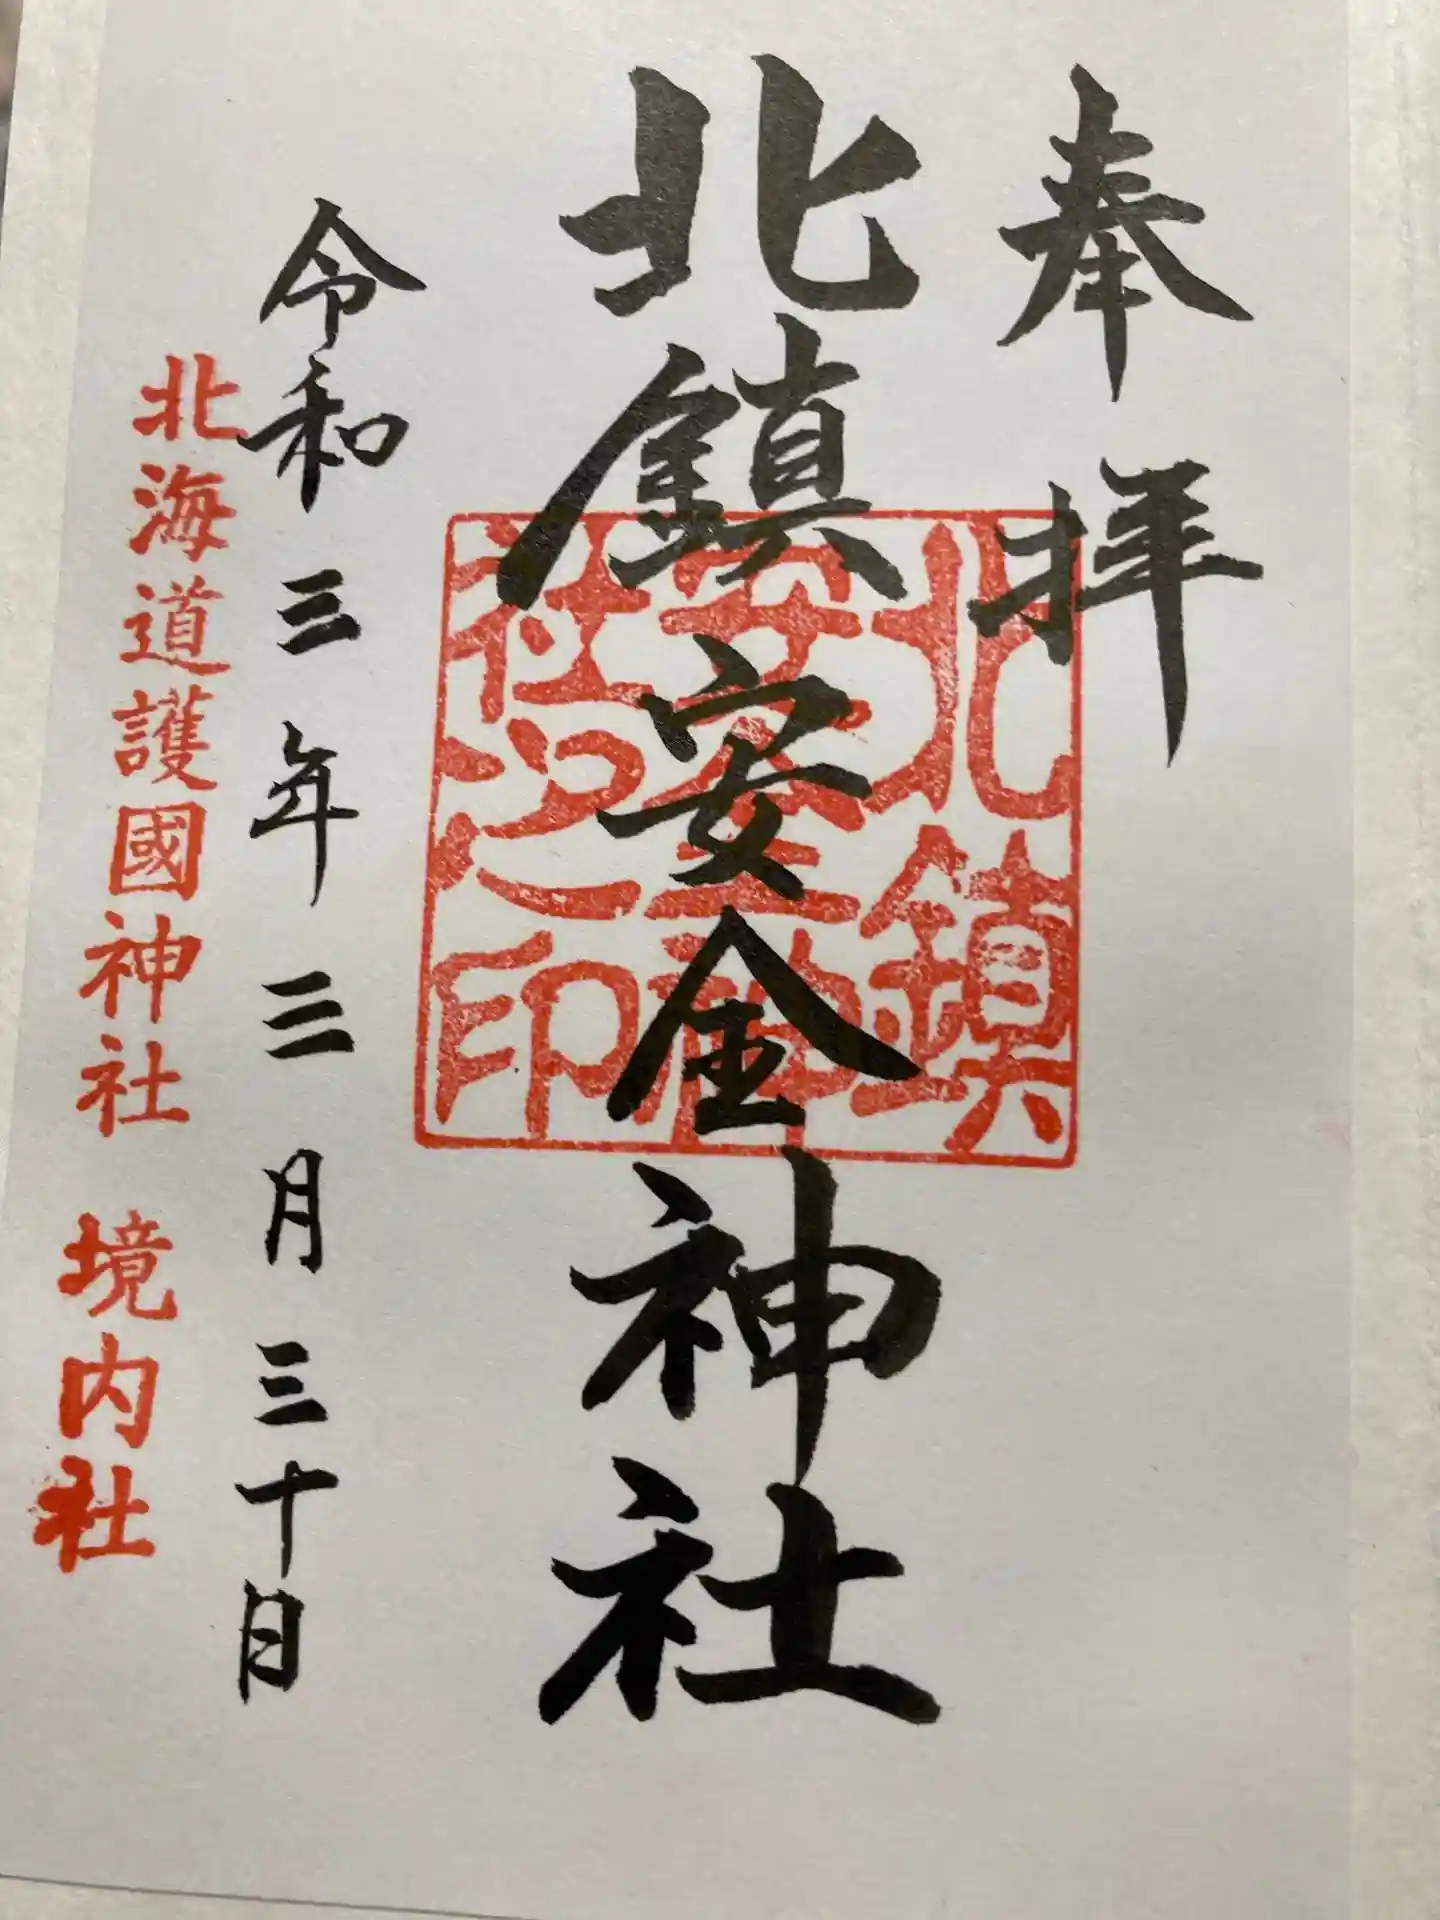 奉拝
北鎮安全神社
北鎮
安全神
社之印
令和三年三月三十日
北海道護國神社 境内社